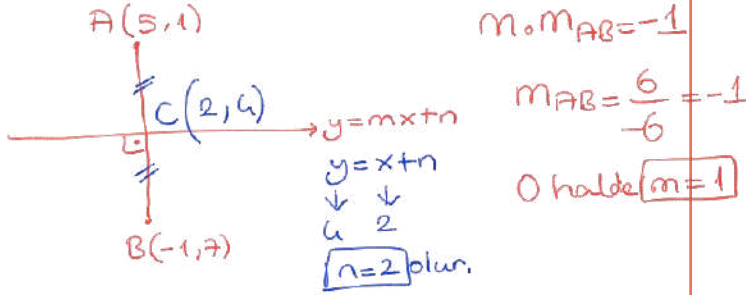 A(5,1)
C(2,4)
y=mx+n
y=x+n
↓ ↓
4 2
n=2 olur.
B(-1,7)
m.mAB=-1
mAB=6/-6=-1
O halde m=1